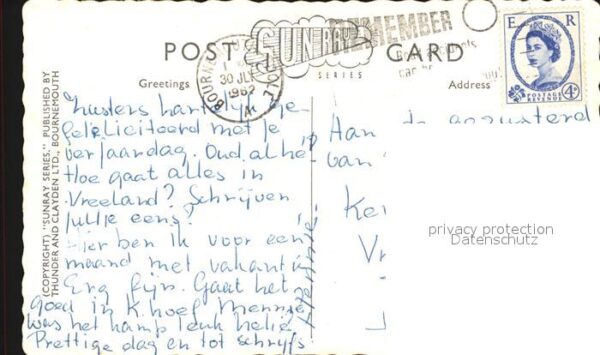 POST CARD
SUNRAY
SERIES
REMEMBER
Greetings
Address
BOURNEMOUTH POOLE
30 JLY
1962
A
E R
POSTAGE REVENUE
4D
(COPYRIGHT) "SUNRAY SERIES." PUBLISHED BY
THUNDER AND CLAYDEN LTD., BOURNEMOUTH
hartelijk ge
feliciteerd met je
verjaardag. Oud al hè
Hoe gaat alles in
Vreeland? Schrijven
jullie eens?
Hier ben ik voor een
maand met vakantie
Erg fijn. Gaat het
goed in K.hoef
Was het kamp leuk
Prettige dag en tot schrijfs
Aan de
van
Ke
Vr
privacy protection
Datenschutz